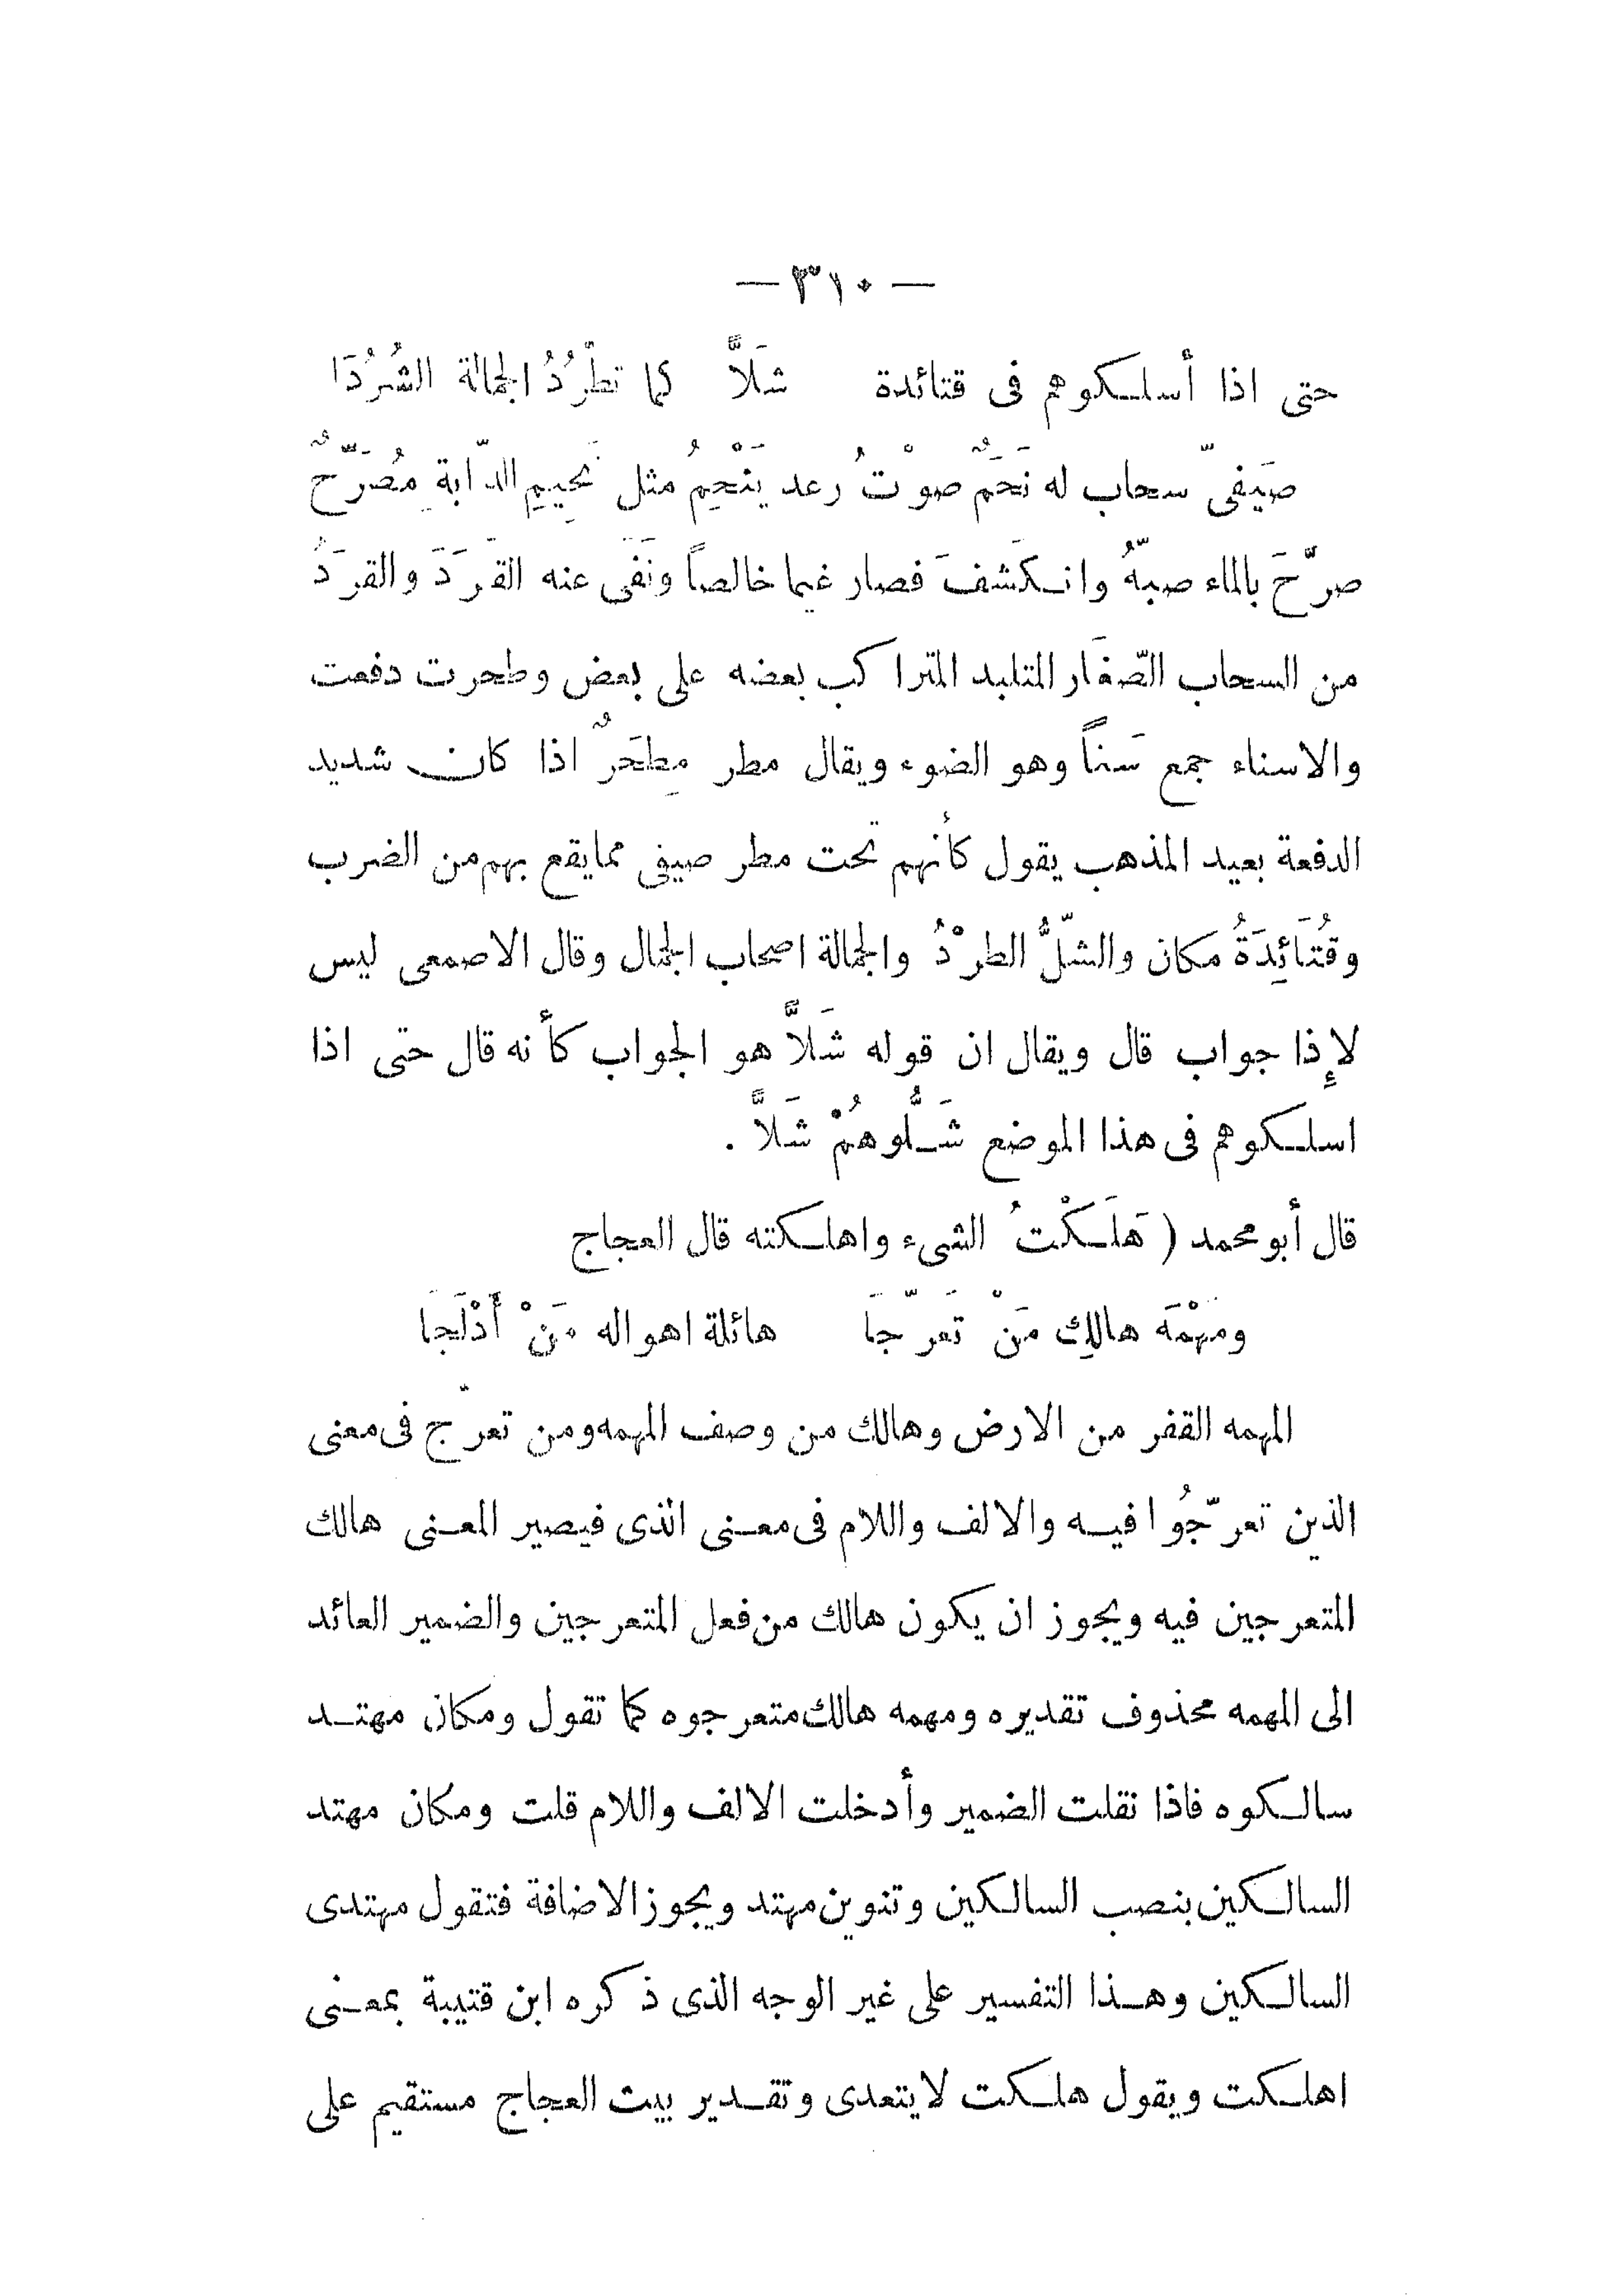 — ٣١٠ —
حتى اذا أسلكوهم فى قتائدة شَلاًّ كما تطْرُدُ الجمالة الشُرُدَا
صَيفىّ سحاب له نَحَمٌ صوْتُ رعد يَنْحِمُ مثل نَحِيمِ الدّابة مُصَرِّحٌ
صرّحَ بالماء صبهُّ وانكشفَ فصار غيما خالصاً ونَفَى عنه القَرَدَ والقرَدُ
من السحاب الصّغار المتلبد المتراكب بعضه على بعض وطحرت دفعت
والاسناء جمع سَناً وهو الضوء ويقال مطر مِطحَرٌ اذا كان شديد
الدفعة بعيد المذهب يقول كأنهم تحت مطر صيفى ممايقع بهم من الضرب
وقُتَائِدَةُ مكان والشّلُّ الطرْدُ والجمالة اصحاب الجمال وقال الاصمعى ليس
لإِذا جواب قال ويقال ان قوله شَلاًّ هو الجواب كأنه قال حتى اذا
اسلكوهم فى هذا الموضع شَلُّوهُمْ شَلاًّ .
قال أبو محمد ( هَلَكْتُ الشىء واهلكته قال العجاج
ومَهْمَه هالِك مَنْ تَعَرّجَا هائلة اهواله مَنْ أَدْلَجَا
المهمه القفر من الارض وهالك من وصف المهمه ومن تعرّج فى معنى
الذين تعرّجُوا فيه والالف واللام فى معنى الذى فيصير المعنى هالك
المتعرجين فيه ويجوز ان يكون هالك من فعل المتعرجين والضمير العائد
الى المهمه محذوف تقديره ومهمه هالك متعرجوه كما تقول ومكان مهتد
سالكوه فاذا نقلت الضمير وأدخلت الالف واللام قلت ومكان مهتد
السالكين بنصب السالكين وتنوين مهتد ويجوز الاضافة فتقول مهتدى
السالكين وهذا التفسير على غير الوجه الذى ذكره ابن قتيبة بمعنى
اهلكت ويقول هلكت لايتعدى وتقدير بيت العجاج مستقيم على